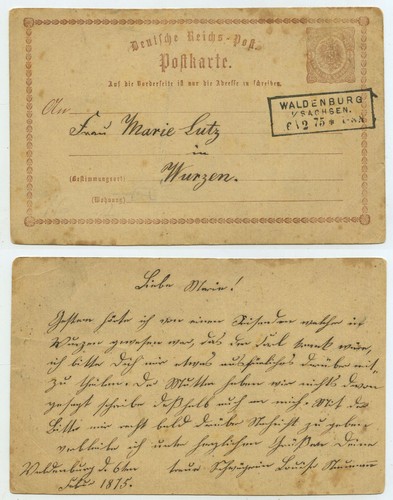 Deutsche Reichs-Post.
Postkarte.
Auf die Vorderseite ist nur die Adresse zu schreiben.
WALDENBURG
i/SACHSEN.
6 12 75
An
Frau Marie Lutz
in
(Bestimmungsort) Wurzen.
(Wohnung)
Liebe Marie!
Gestern hörte ich von einem Reisenden welcher in
Wurzen gewesen war, das der Karl krank wäre,
ich bitte Dich mir etwas ausführliches darüber mit
zu theilen. Der Mutter haben wir nichts davon
gesagt schreibe deßhalb auch an mich. Mit der
Bitte mir recht bald darüber Nachricht zu geben
verbleibe ich unter herzlichen Grüßen Deine
Waldenburg d. 6ten treue Schwägerin Louise Neumann
1875.